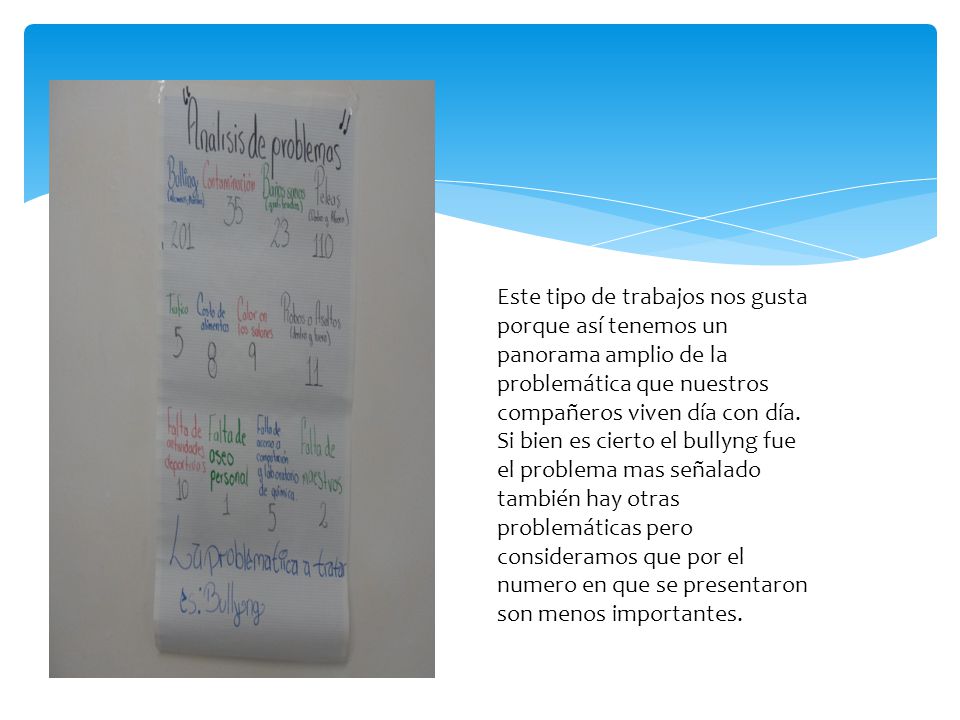 "Analisis de problemas"
Bulling Contaminación Baños sucios Peleas
201 35 23 110
Trafico Costo de alimentos Calor en los salones Robos o Asaltos
(dentro y fuera)
5 8 9 11
Falta de actividades deportivos
10
Falta de aseo personal
1
Falta de acceso a computación y laboratorio de química.
5
Falta de maestros
2
La problematica a tratar
es: Bullyng
Este tipo de trabajos nos gusta
porque así tenemos un
panorama amplio de la
problemática que nuestros
compañeros viven día con día.
Si bien es cierto el bullyng fue
el problema mas señalado
también hay otras
problemáticas pero
consideramos que por el
numero en que se presentaron
son menos importantes.